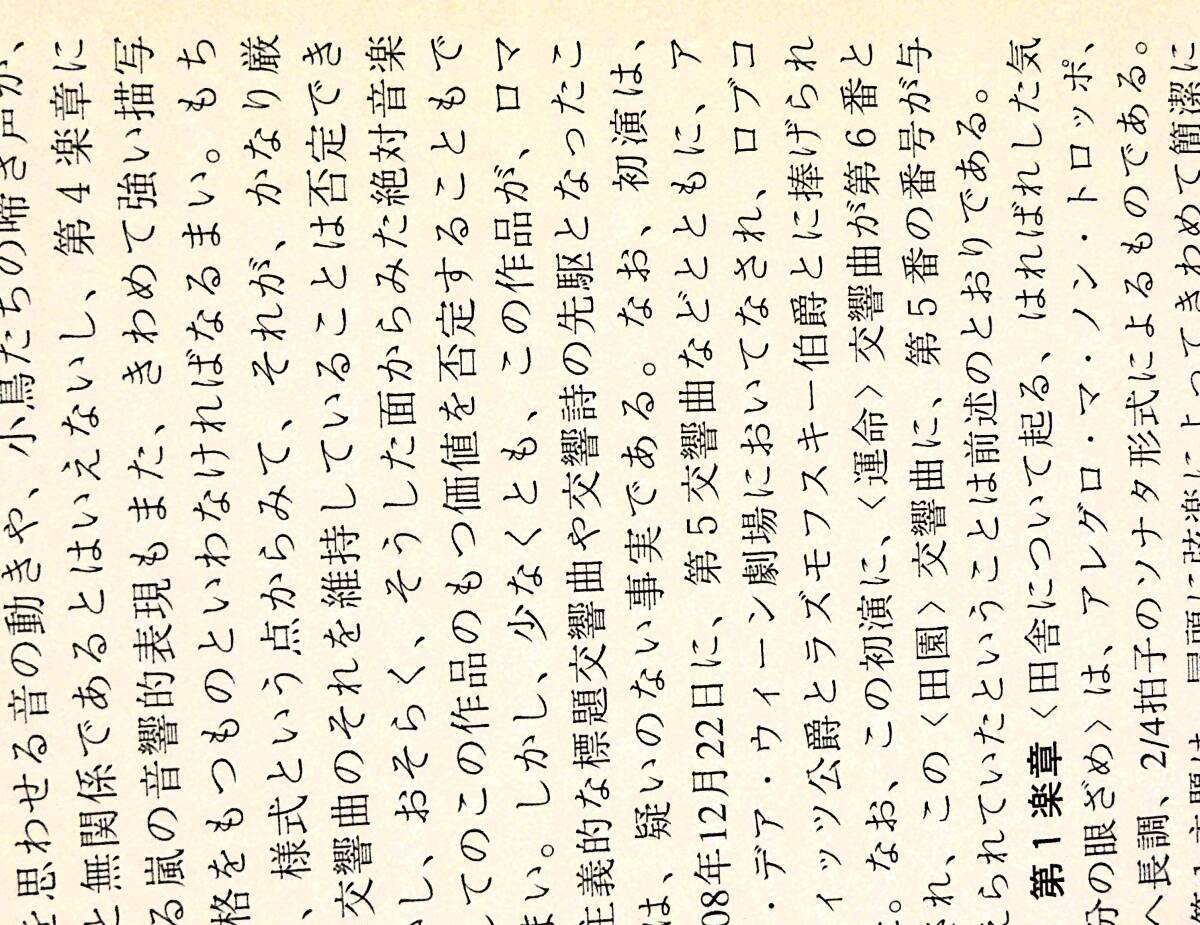 を思わせる音の動きや、小鳥たちの啼き声が、
と無関係であるとはいえないし、第4楽章に
る嵐の音響的表現もまた、きわめて強い描写
格をもつものといわなければなるまい。もち
、様式という点からみて、それが、かなり厳
交響曲のそれを維持していることは否定でき
し、おそらく、そうした面からみた絶対音楽
てのこの作品のもつ価値を否定することもで
まい。しかし、少なくとも、この作品が、ロマ
主義的な標題交響曲や交響詩の先駆となったこ
は、疑いのない事実である。なお、初演は、
08年12月22日に、第5交響曲などとともに、ア
・デア・ウィーン劇場においてなされ、ロブコ
ィッツ公爵とラズモフスキー伯爵とに捧げられ
。なお、この初演に、〈運命〉交響曲が第6番と
れ、この〈田園〉交響曲に、第5番の番号が与
えられていたということは前述のとおりである。
第1楽章〈田舎について起る、はればれした気
分の眼ざめ〉は、アレグロ・マ・ノン・トロッポ、
ヘ長調、2/4拍子のソナタ形式によるものである。
第1主題は、冒頭に弦楽によってきわめて簡潔に